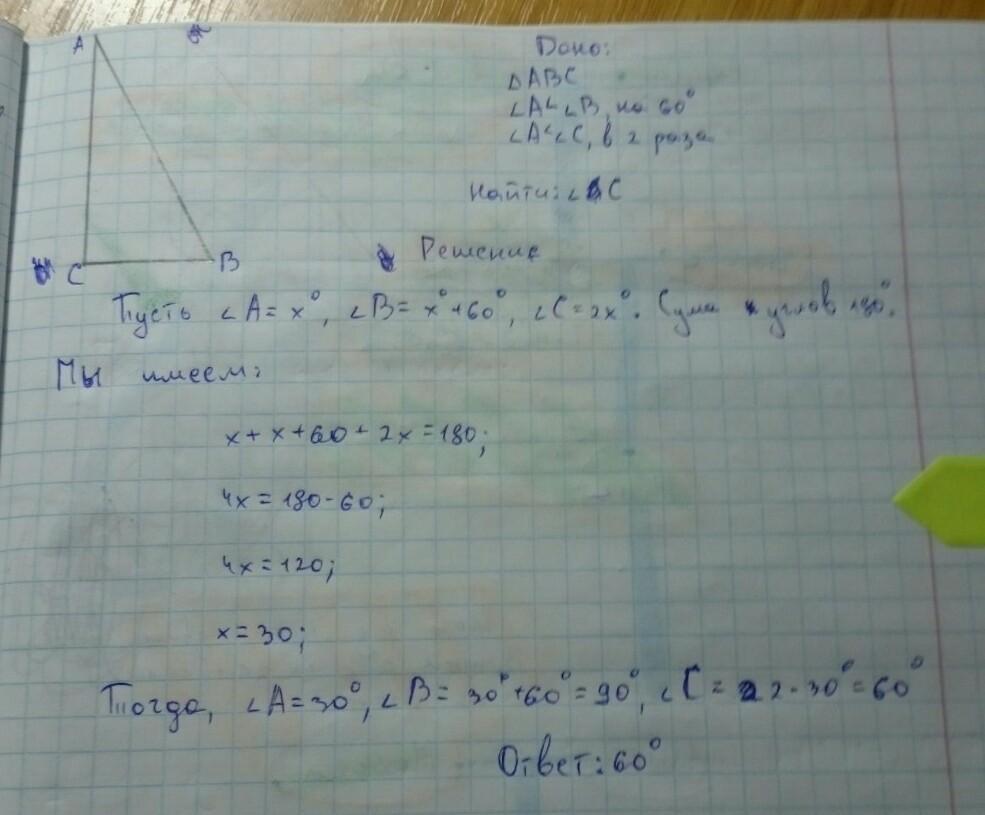 A
Дано:
△ABC
∠A<∠B, на 60°
∠A<∠C, в 2 раза
Найти: ∠C
C B
Решение
Пусть ∠A = x°, ∠B = x°+60°, ∠C = 2x°. Сума углов 180°.
Мы имеем:
x + x + 60 + 2x = 180;
4x = 180 - 60;
4x = 120;
x = 30;
Тогда, ∠A = 30°, ∠B = 30°+60° = 90°, ∠C = 2·30° = 60°
Ответ: 60°